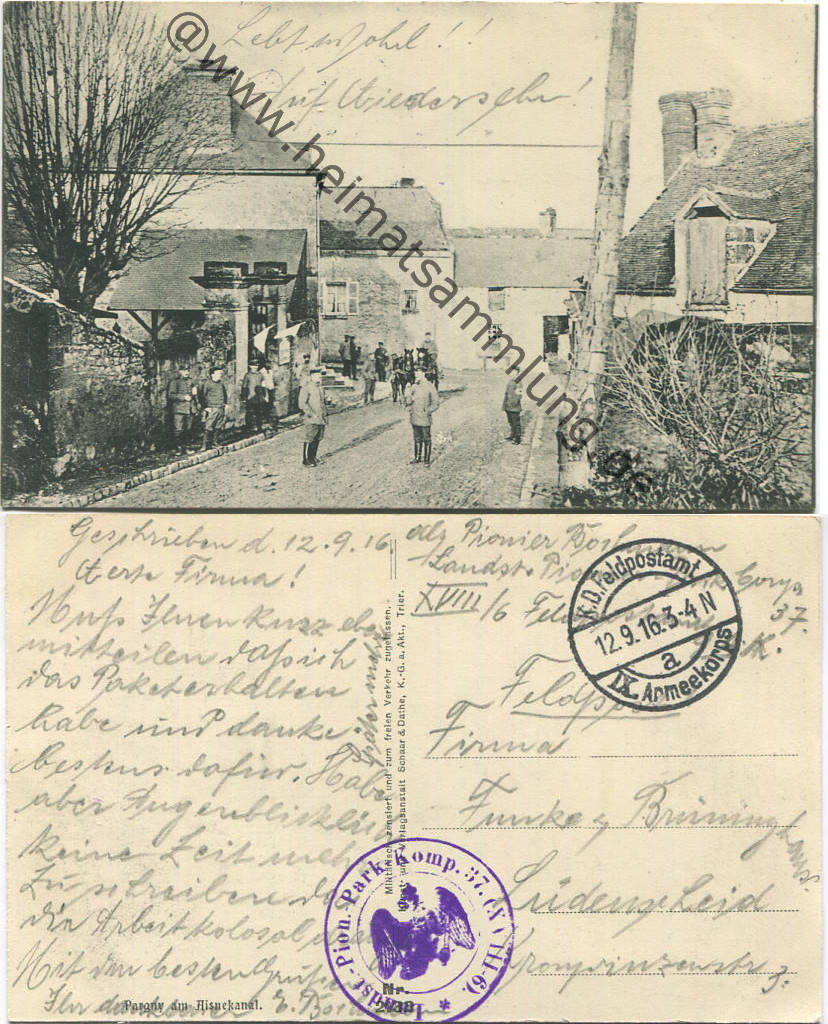 Lebt wohl!!
Auf Wiedersehn!
@www.heimatsammlung.de
Geschrieben d. 12.9.16.
Werte Firma!
Muß Ihnen kurz eben
mitteilen daß ich
das Paket erhalten
habe und danke
bestens dafür. Habe
aber Augenblicklich
keine Zeit mehr
zu schreiben da
die Arbeit kolosal
Mit den besten Grüßen
Ihr E.
später mehr
Pargny am Aisnekanal.
Militärisch zensiert und zum freien Verkehr zugelassen.
Kunst- und Verlagsanstalt Schaar & Dathe, K.-G. a. Akt., Trier.
Nr.
Abs. Pionier
Landst. Pion. Park Comp.
XVIII/6 37.
K.D. Feldpostamt
12.9.16.3-4 N
a
IX. Armeekorps
Feldpost
Firma
Funke & Brüninghaus
Lüdenscheid
Landst.-Pion.-Park-Komp. 37. (XVIII-6). *